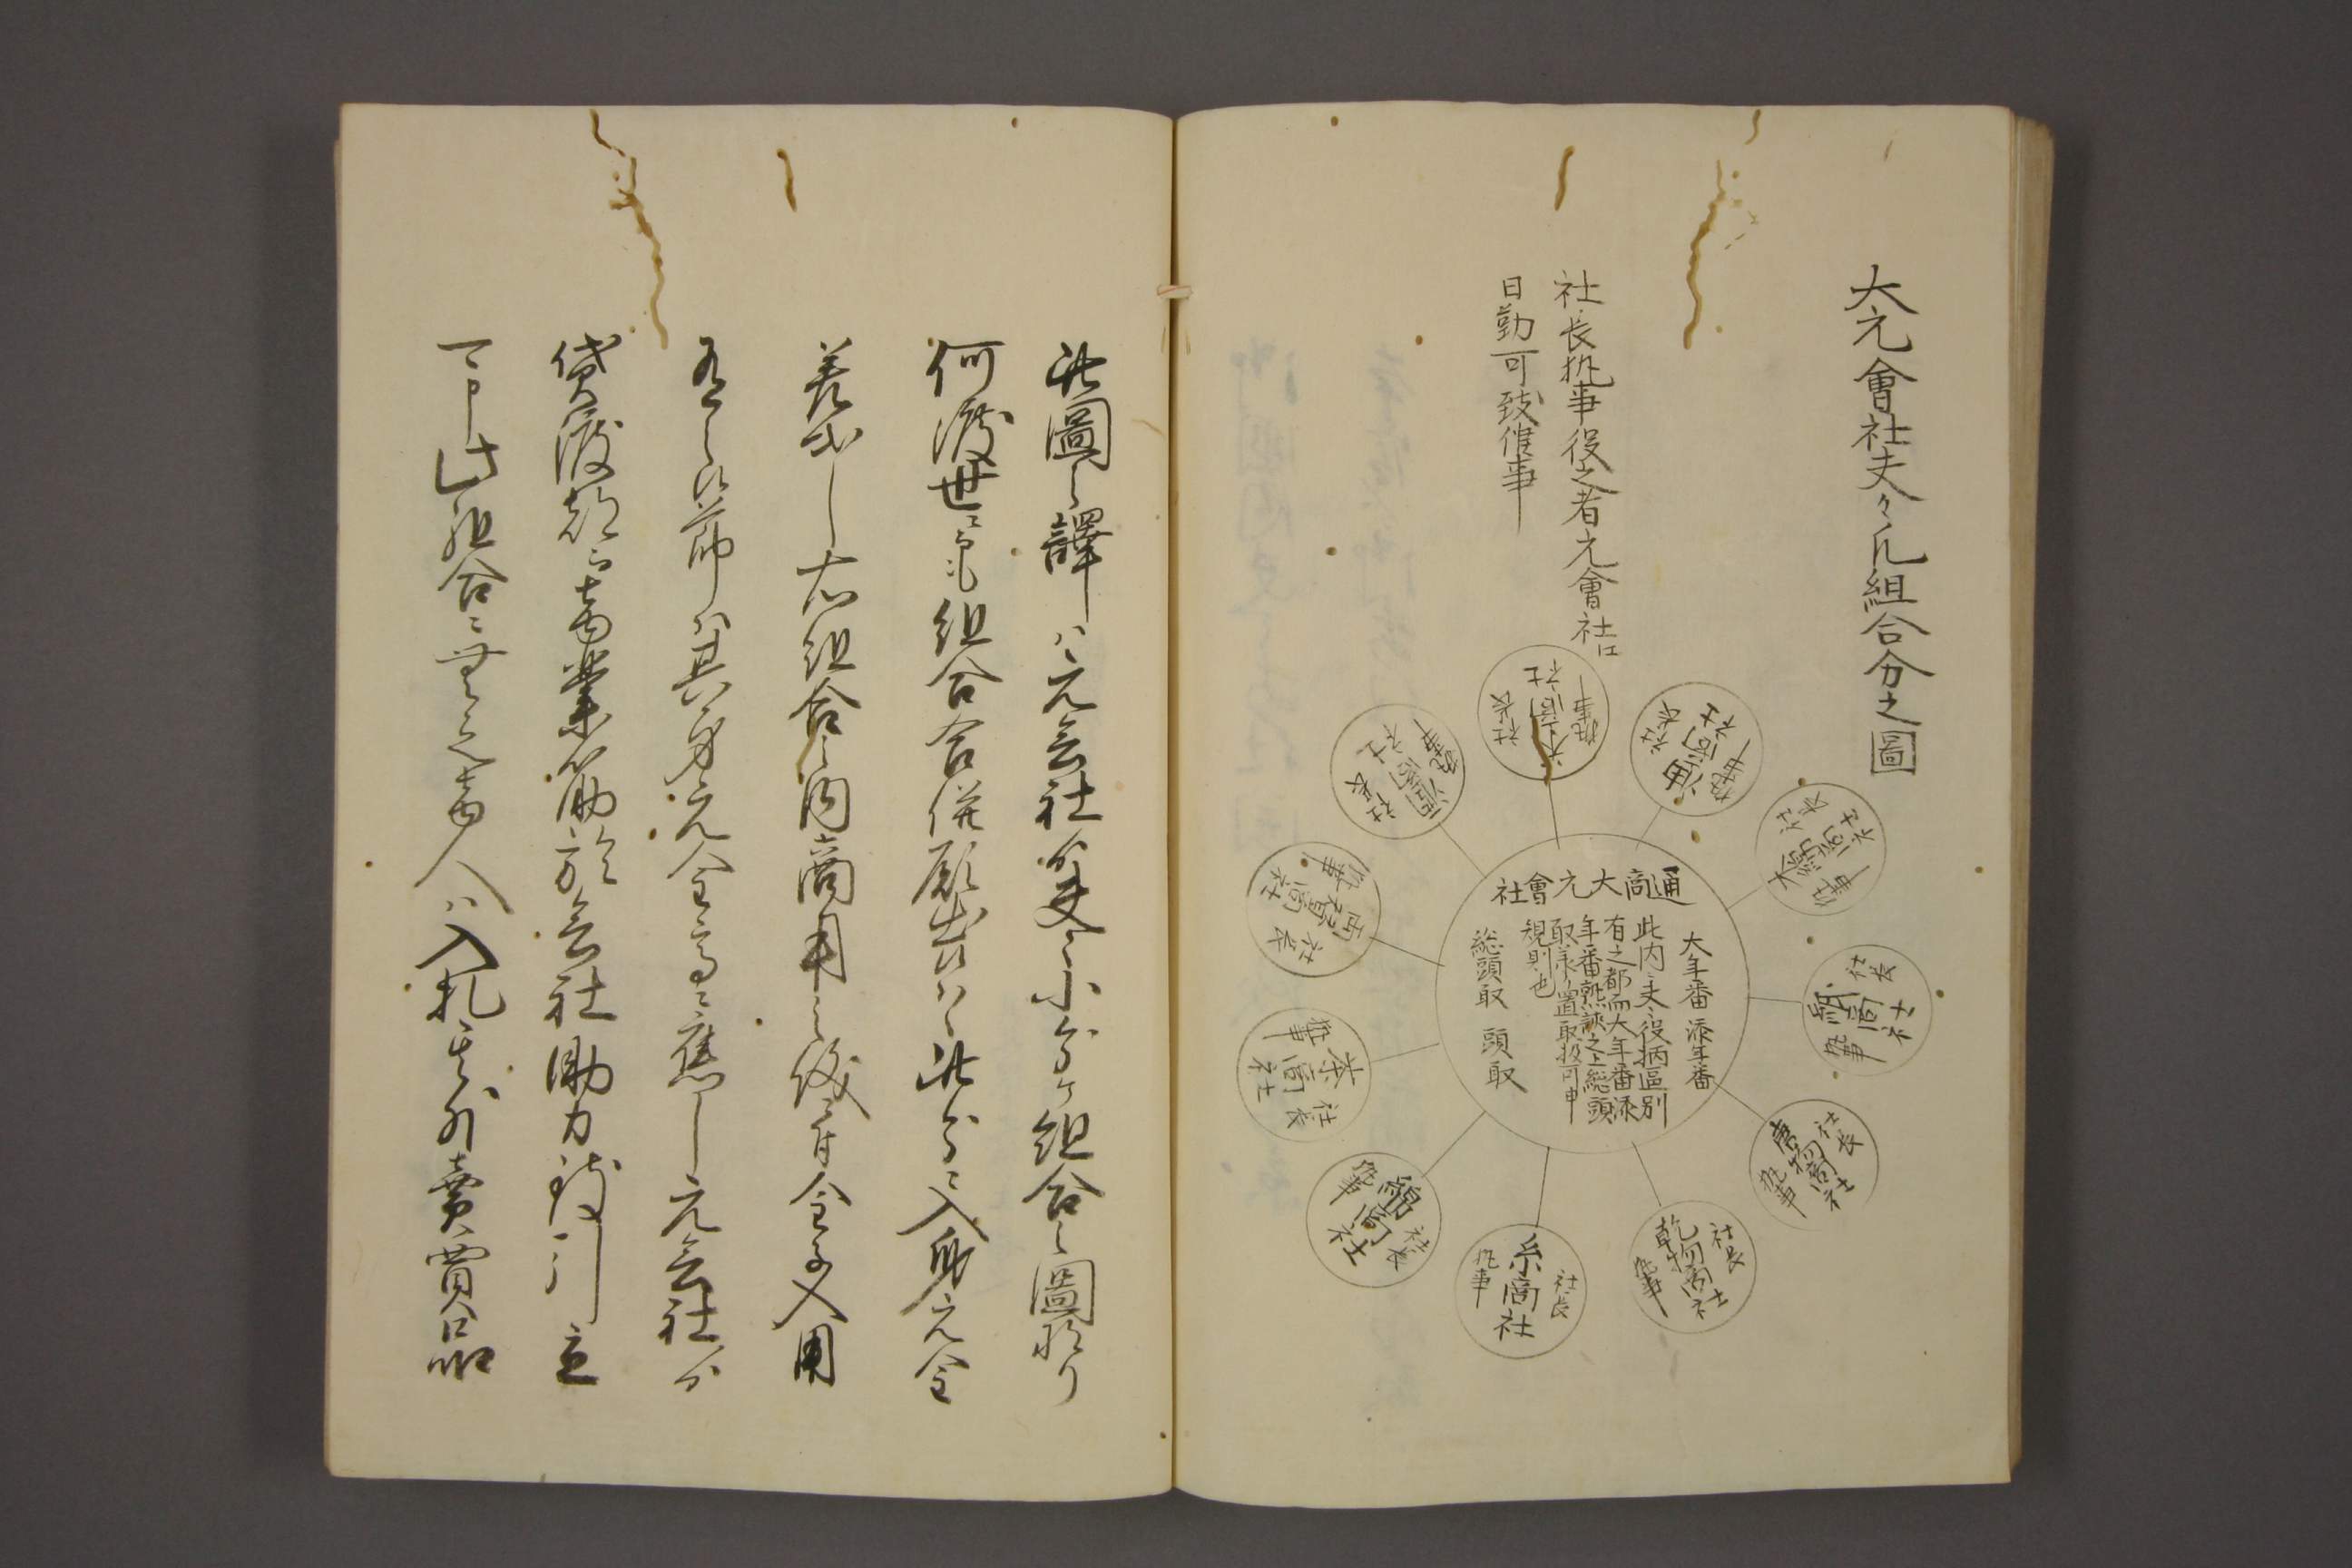 大元會社夫々凡組合分之圖
社長執事役之者元會社江
日勤可致候事
通商大元會社
大年番 添年番
此内夫々役柄區別
有之都而大年番添
年番熟談之上総頭
取承り置取扱可申
規則也
総頭取 頭取
油商社
社長
執事
社長
執事
紙商社
社長
執事
唐物商社
社長
執事
乾物商社
社長
執事
糸商社
社長
執事
綿商社
社長
執事
茶商社
社長
執事
両替商社
社長
執事
酒商社
社長
執事
商社
社長
執事
此圖之譯ハ元会社ゟ夫々小分ケ組合之圖なり
何渡世ニ而も組合合併願出候ハヽ此分ニ入身元金
差出し右組合之内商用之後ニ付金子入用
有之候節ハ其身元金高ニ應し元会社ゟ
貸渡都而商業筋於会社助力致引立
可申此組合ニ無之商人ハ入札其外賣買品